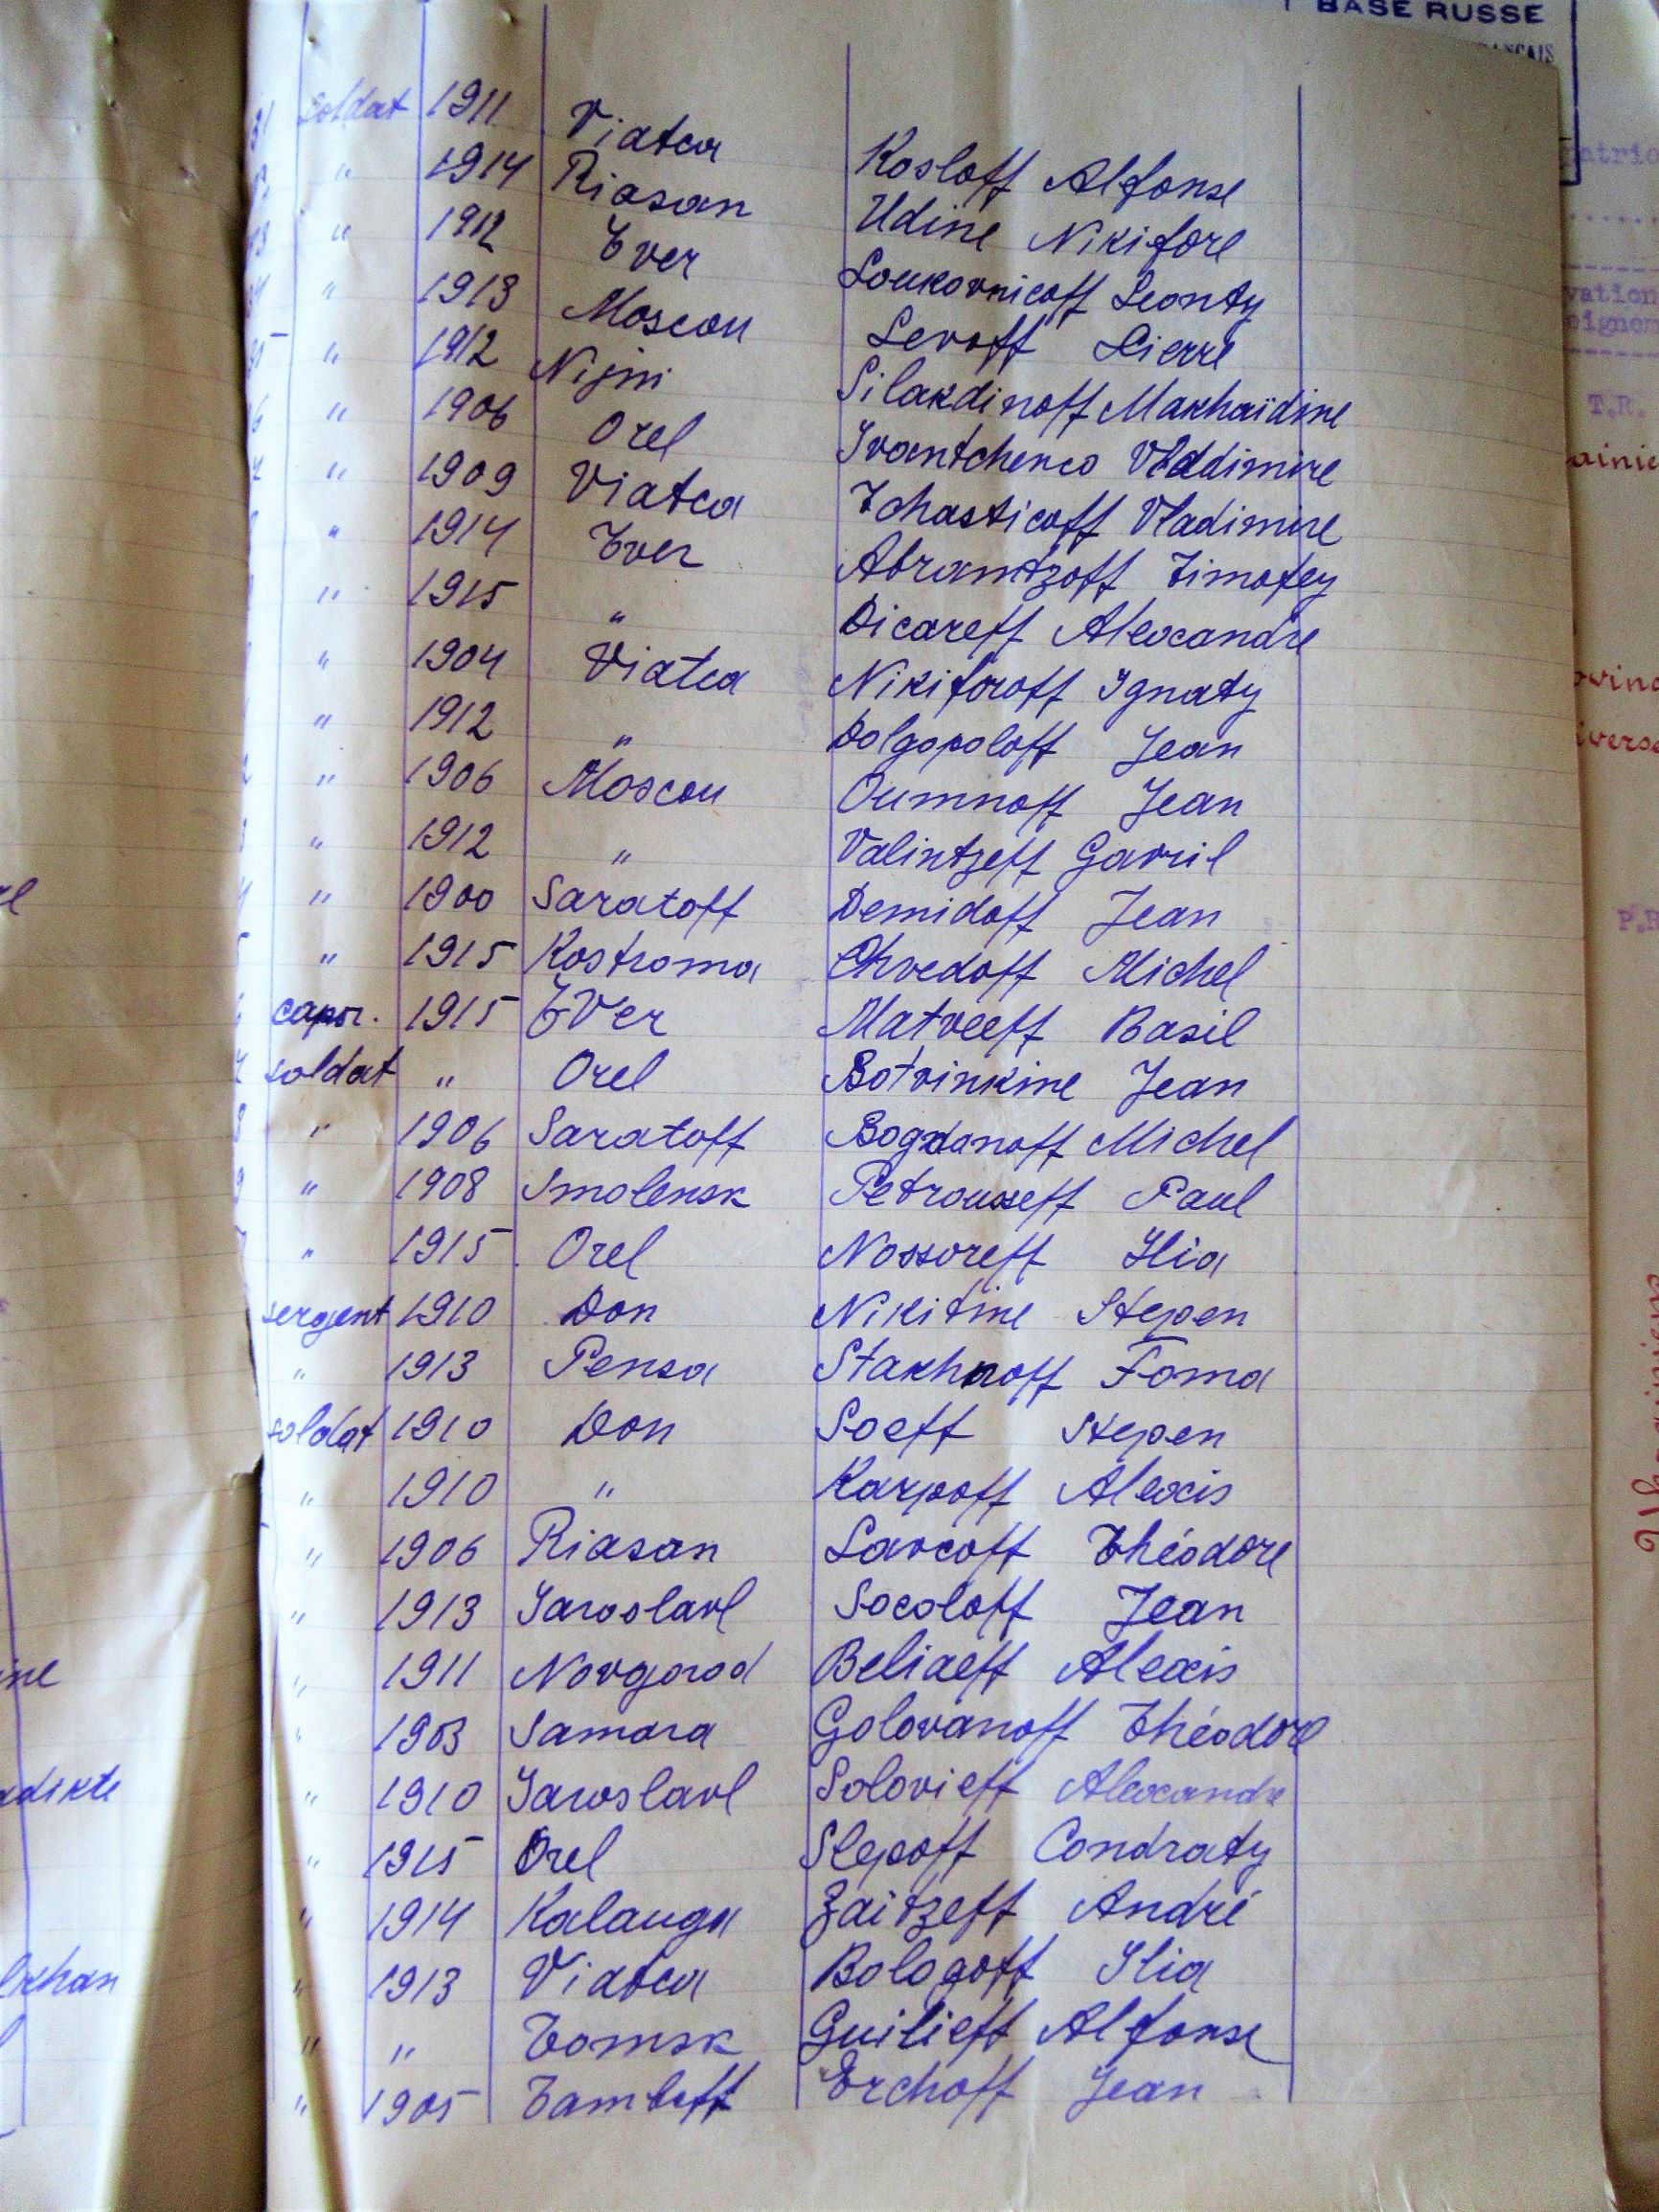 BASE RUSSE
soldat 1911 Viatca Kosloff Alfonse
" 1914 Riasan Udine Nikifore
" 1912 Tver Loukovnicoff Leonty
" 1913 Moscou Levoff Pierre
" 1912 Nijni Silakdinoff Makhaïdine
" 1906 Orel Ivantchenco Vladimire
" 1909 Viatca Tchasticoff Vladimire
" 1914 Tver Abramtzoff Timofey
" 1915 " Dicareff Alexandre
" 1904 Viatca Nikiforoff Ignaty
" 1912 " Dolgopoloff Jean
" 1906 Moscou Oumnoff Jean
" 1912 " Valintzeff Gavril
" 1900 Saratoff Demidoff Jean
" 1915 Kostroma Chvedoff Michel
capor. 1915 Tver Matveeff Basil
soldat " Orel Botvinkine Jean
" 1906 Saratoff Bogdanoff Michel
" 1908 Smolensk Petrousseff Paul
" 1915 Orel Nossoreff Ilia
sergent 1910 Don Nikitine Stepen
" 1913 Pensa Stakhnoff Foma
soldat 1910 Don Soeff Stepen
" 1910 " Karpoff Alexis
" 1906 Riasan Savcoff Théodore
" 1913 Jaroslavl Socoloff Jean
" 1911 Novgorod Beliaeff Alexis
" 1903 Samara Golovanoff Théodore
" 1910 Jaroslavl Solovieff Alexandre
" 1915 Orel Slepoff Condraty
" 1914 Kalauga Zaitzeff André
" 1913 Viatca Bologoff Ilia
" " Tomsk Guilieff Alfonse
" 1905 Tamboff Erchoff Jean